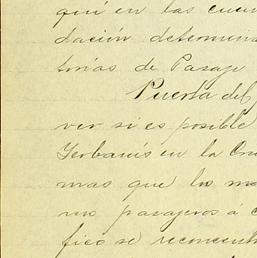 quí en las cuen
dación determina
torias de Pasaje
Puerta del
ver si es posible
Yerbanís en la Cru
mas que los ma
mo pasajeros á c
fico se reconcent